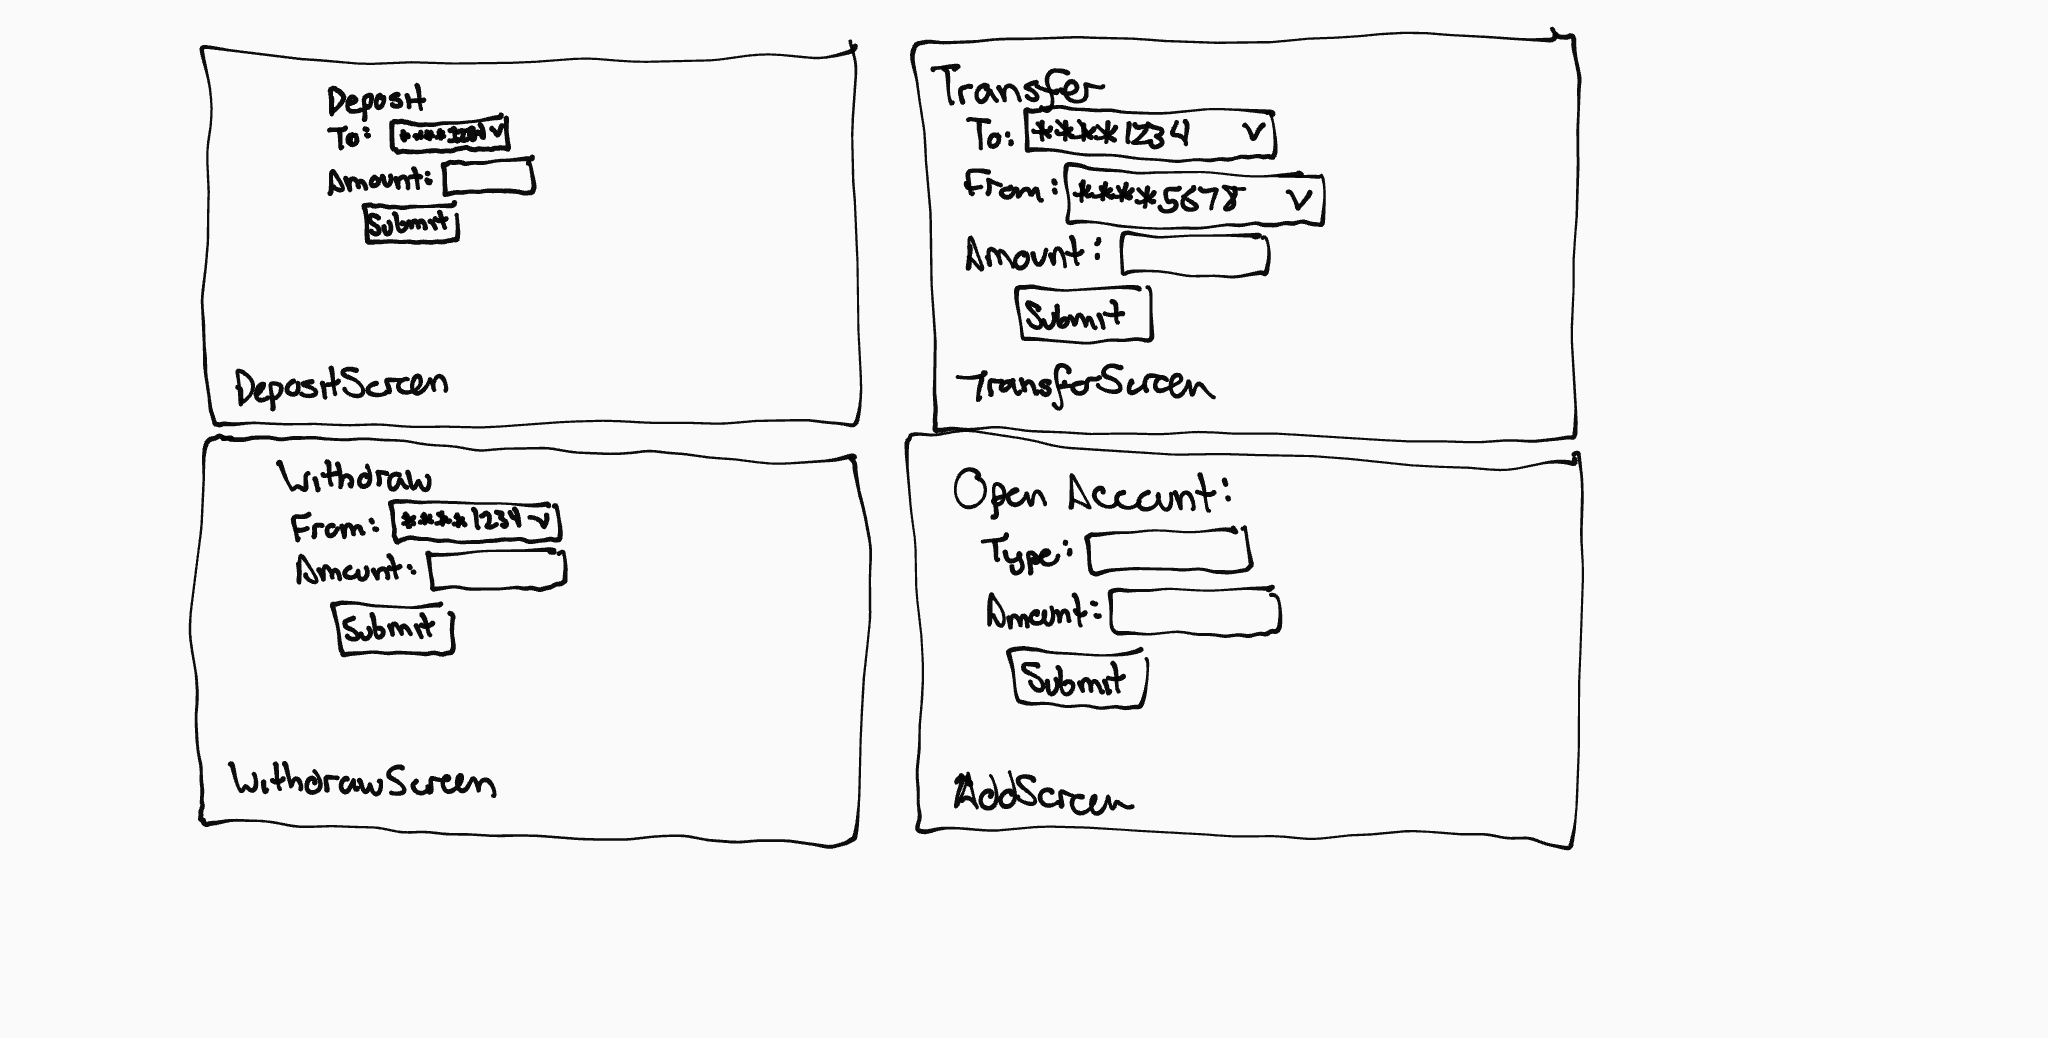 Deposit
To: V
Amount:
Submit
DepositScreen
Transfer
To: ****1234 V
From: ****5678 V
Amount:
Submit
TransferScreen
Withdraw
From: ****1234 V
Amount:
Submit
WithdrawScreen
Open Account:
Type:
Amount:
Submit
AddScreen